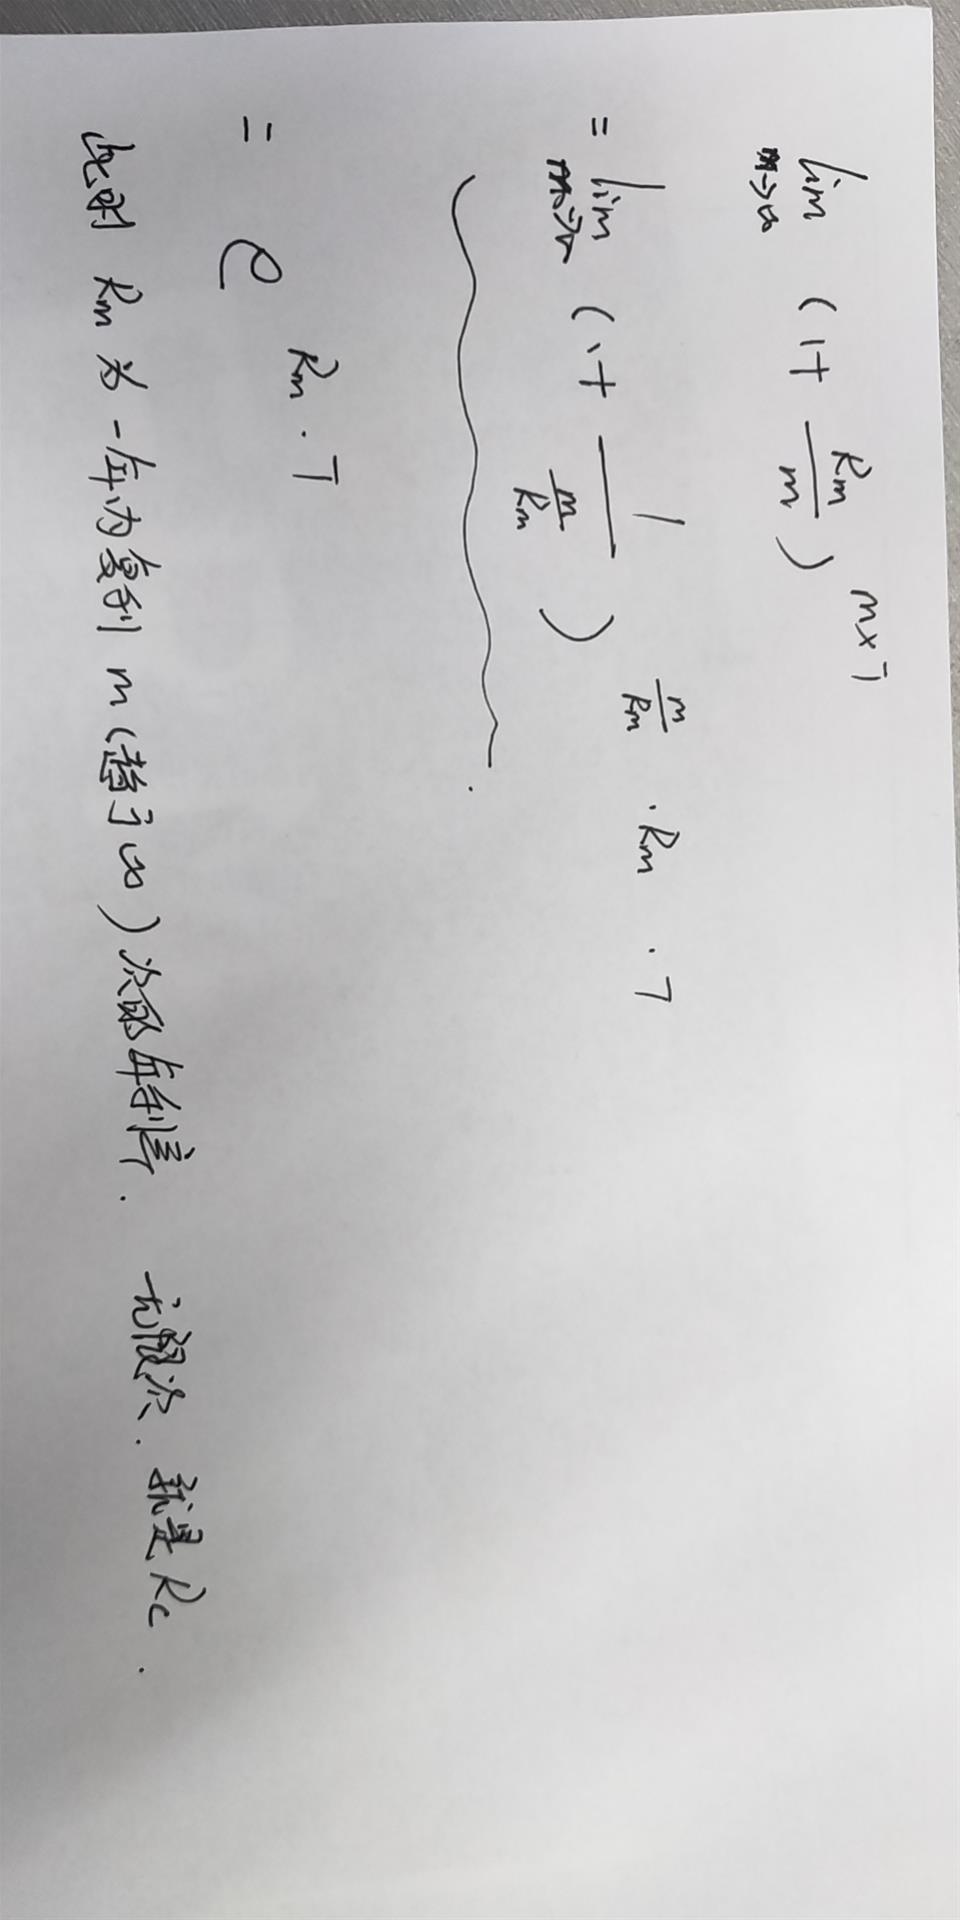 lim m→∞ (1+ Rm/m)^m×T
= lim m→∞ (1+ 1/(m/Rm))^(m/Rm · Rm · T)
= e^Rm·T
此时 Rm 为一年内复利 m (趋于∞) 次的年利率. 无限次. 就是 Rc.